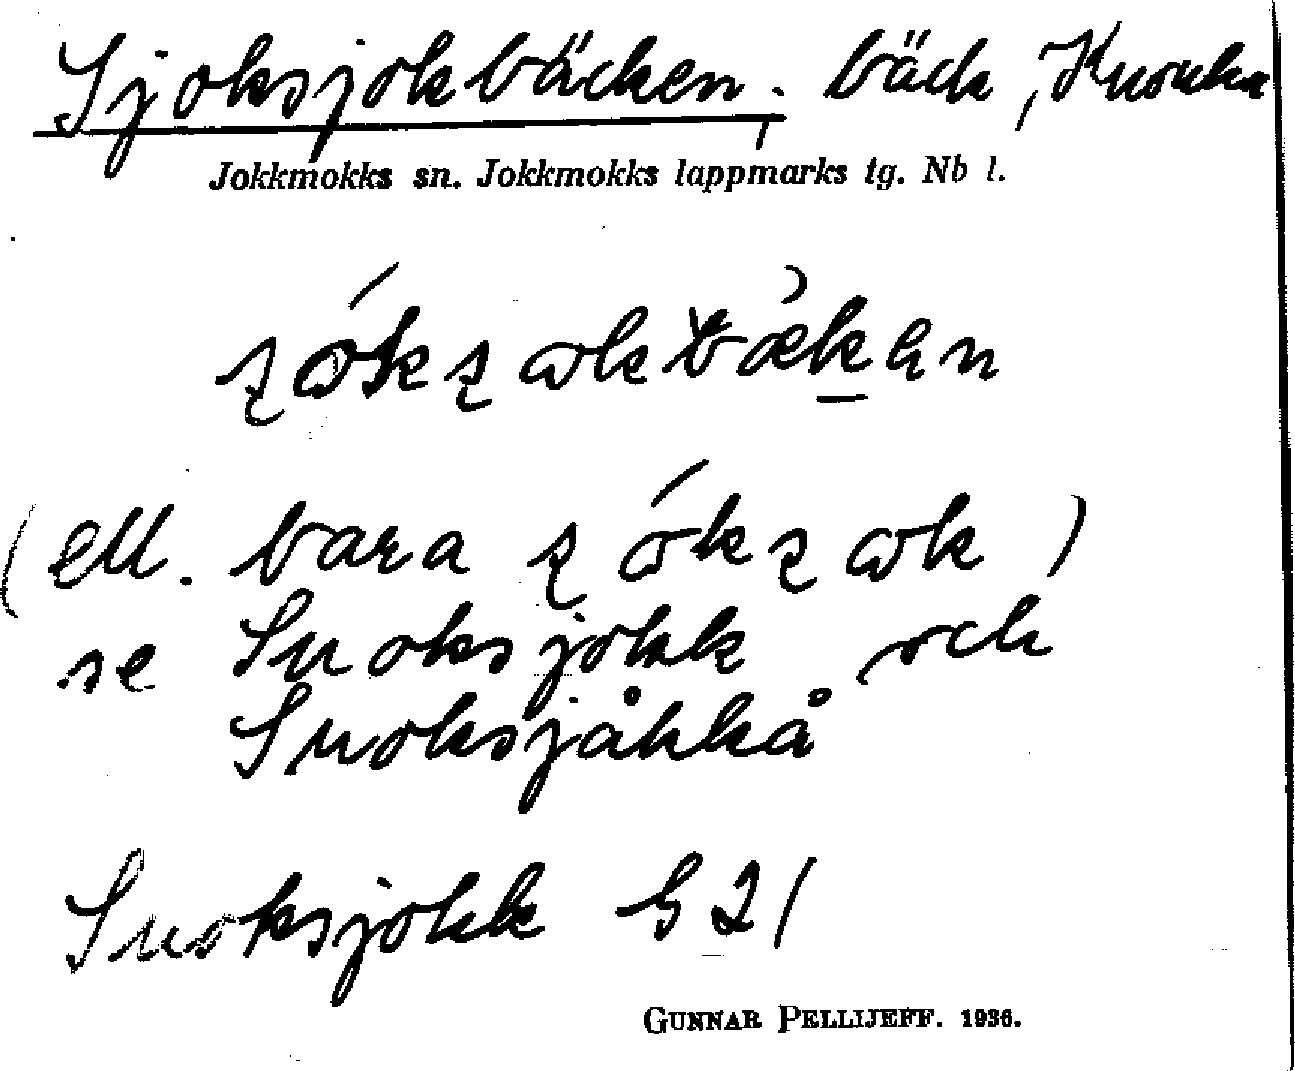 Sjoksjokbäcken, bäck, Kuouka
Jokkmokks sn. Jokkmokks lappmarks tg. Nb l.
(ell. bara
se Suoksjokk och
Suoksjåkkå
Suoksjokk G 21
GUNNAR PELLIJEFF. 1936.